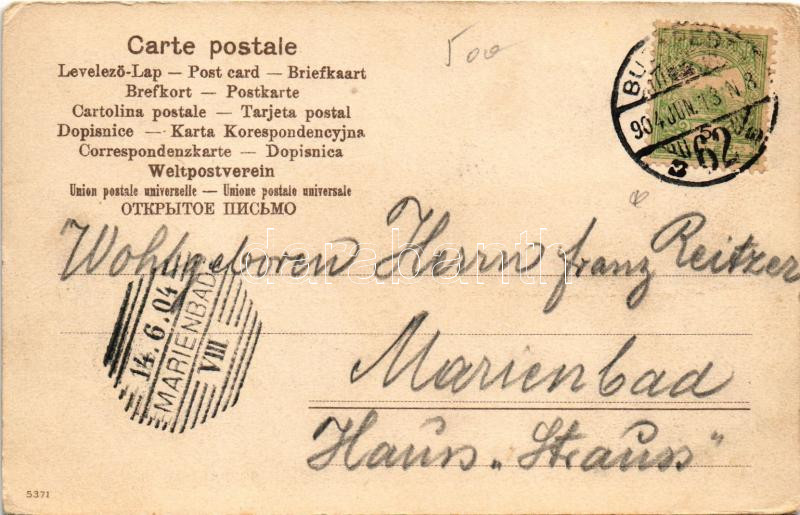 Carte postale
500
Levelező-Lap — Post card — Briefkaart
Brefkort — Postkarte
Cartolina postale — Tarjeta postal
Dopisnice — Karta Korespondencyjna
Correspondenzkarte — Dopisnica
Weltpostverein
Union postale universelle — Unione postale universale
ОТКРЫТОЕ ПИСЬМО
BUDAPEST
904 JUN. 13 N. 8
62
Wohlgeboren Herrn franz Reitzer
darabanth
14.6.04
MARIENBAD
VIII
Marienbad
Haus „Strauss"
5371